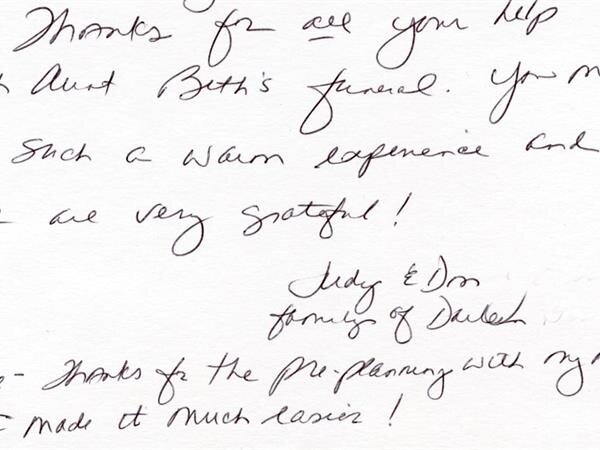 Thanks for all your help
Aunt Beth's funeral. You
such a warm experience and
are very grateful!
Judy & Don
family of
Thanks for the pre-planning with my
made it much easier!